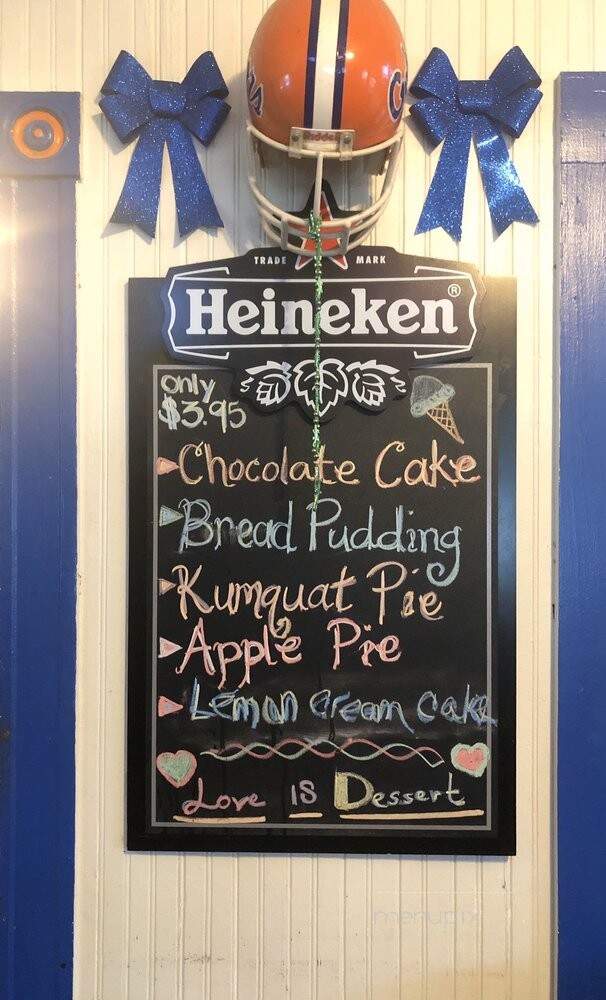 Riddell
TRADE MARK
Heineken®
Only
$3.95
Chocolate Cake
Bread Pudding
Kumquat Pie
Apple Pie
Lemon Cream Cake
Love IS Dessert
menupix